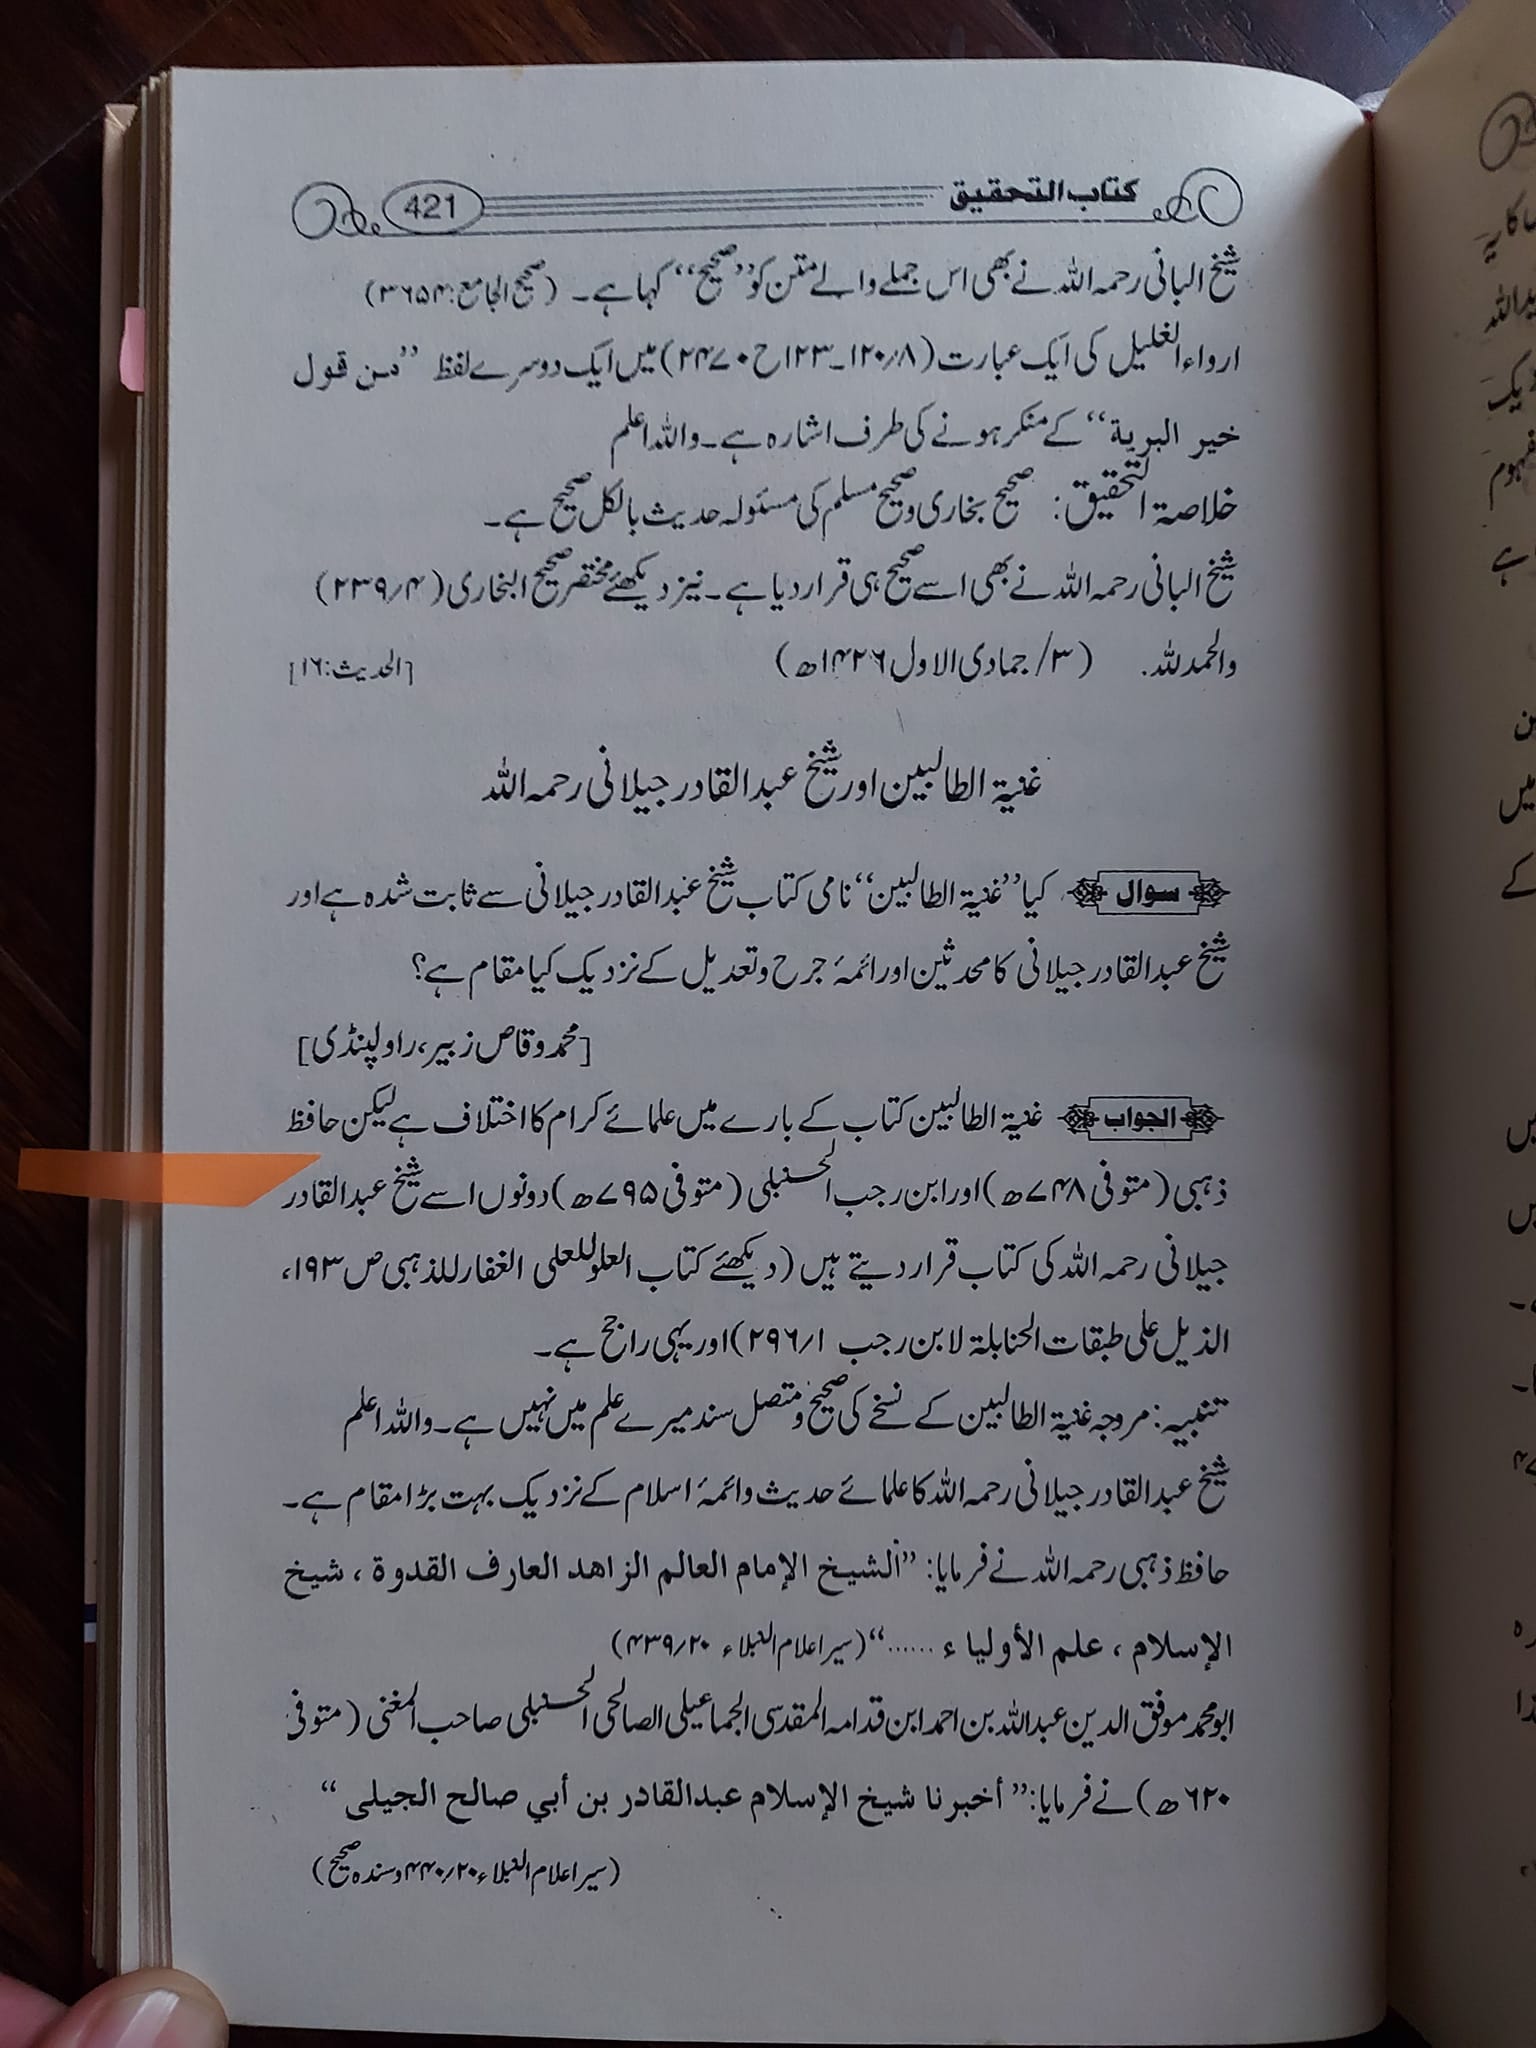 کتاب التحقیق 421
شیخ البانی رحمہ اللہ نے بھی اس جملے والے متن کو ’’صحیح‘‘ کہا ہے۔ (صحیح الجامع: ۳۶۵۴)
ارواء الغلیل کی ایک عبارت (۸/ ۱۲۰۔۱۲۳ ح ۲۴۷۰) میں ایک دوسرے لفظ ’’من قول
خیر البریة‘‘ کے منکر ہونے کی طرف اشارہ ہے۔ واللہ اعلم
خلاصۃ التحقیق: صحیح بخاری و صحیح مسلم کی مسئولہ حدیث بالکل صحیح ہے۔
شیخ البانی رحمہ اللہ نے بھی اسے صحیح ہی قرار دیا ہے۔ نیز دیکھئے مختصر صحیح البخاری (۴/ ۲۳۹)
والحمد للہ۔ (۳/ جمادی الاول ۱۴۲۶ھ) [الحدیث: ۱۶]
غنیۃ الطالبین اور شیخ عبدالقادر جیلانی رحمہ اللہ
سوال کیا ’’غنیۃ الطالبین‘‘ نامی کتاب شیخ عبدالقادر جیلانی سے ثابت شدہ ہے اور
شیخ عبدالقادر جیلانی کا محدثین اور ائمۂ جرح و تعدیل کے نزدیک کیا مقام ہے؟
[محمد وقاص زبیر، راولپنڈی]
الجواب غنیۃ الطالبین کتاب کے بارے میں علمائے کرام کا اختلاف ہے لیکن حافظ
ذہبی (متوفی ۷۴۸ھ) اور ابن رجب الحنبلی (متوفی ۷۹۵ھ) دونوں اسے شیخ عبدالقادر
جیلانی رحمہ اللہ کی کتاب قرار دیتے ہیں (دیکھئے کتاب العلو للعلی الغفار للذہبی ص ۱۹۳،
الذیل علی طبقات الحنابلۃ لابن رجب ۱/ ۲۹۶) اور یہی راجح ہے۔
تنبیہ: مروجہ غنیۃ الطالبین کے نسخے کی صحیح و متصل سند میرے علم میں نہیں ہے۔ واللہ اعلم
شیخ عبدالقادر جیلانی رحمہ اللہ کا علمائے حدیث و ائمۂ اسلام کے نزدیک بہت بڑا مقام ہے۔
حافظ ذہبی رحمہ اللہ نے فرمایا: ’’الشیخ الإمام العالم الزاهد العارف القدوة ، شیخ
الإسلام ، علم الأولیاء ......‘‘ (سیر اعلام النبلاء ۲۰/ ۴۳۹)
ابو محمد موفق الدین عبداللہ بن احمد ابن قدامہ المقدسی الجماعیلی الصالحی الحنبلی صاحب المغنی (متوفی
۶۲۰ھ) نے فرمایا: ’’أخبرنا شیخ الإسلام عبدالقادر بن أبي صالح الجیلی‘‘
(سیر اعلام النبلاء ۲۰/ ۴۴۰ وسندہ صحیح)